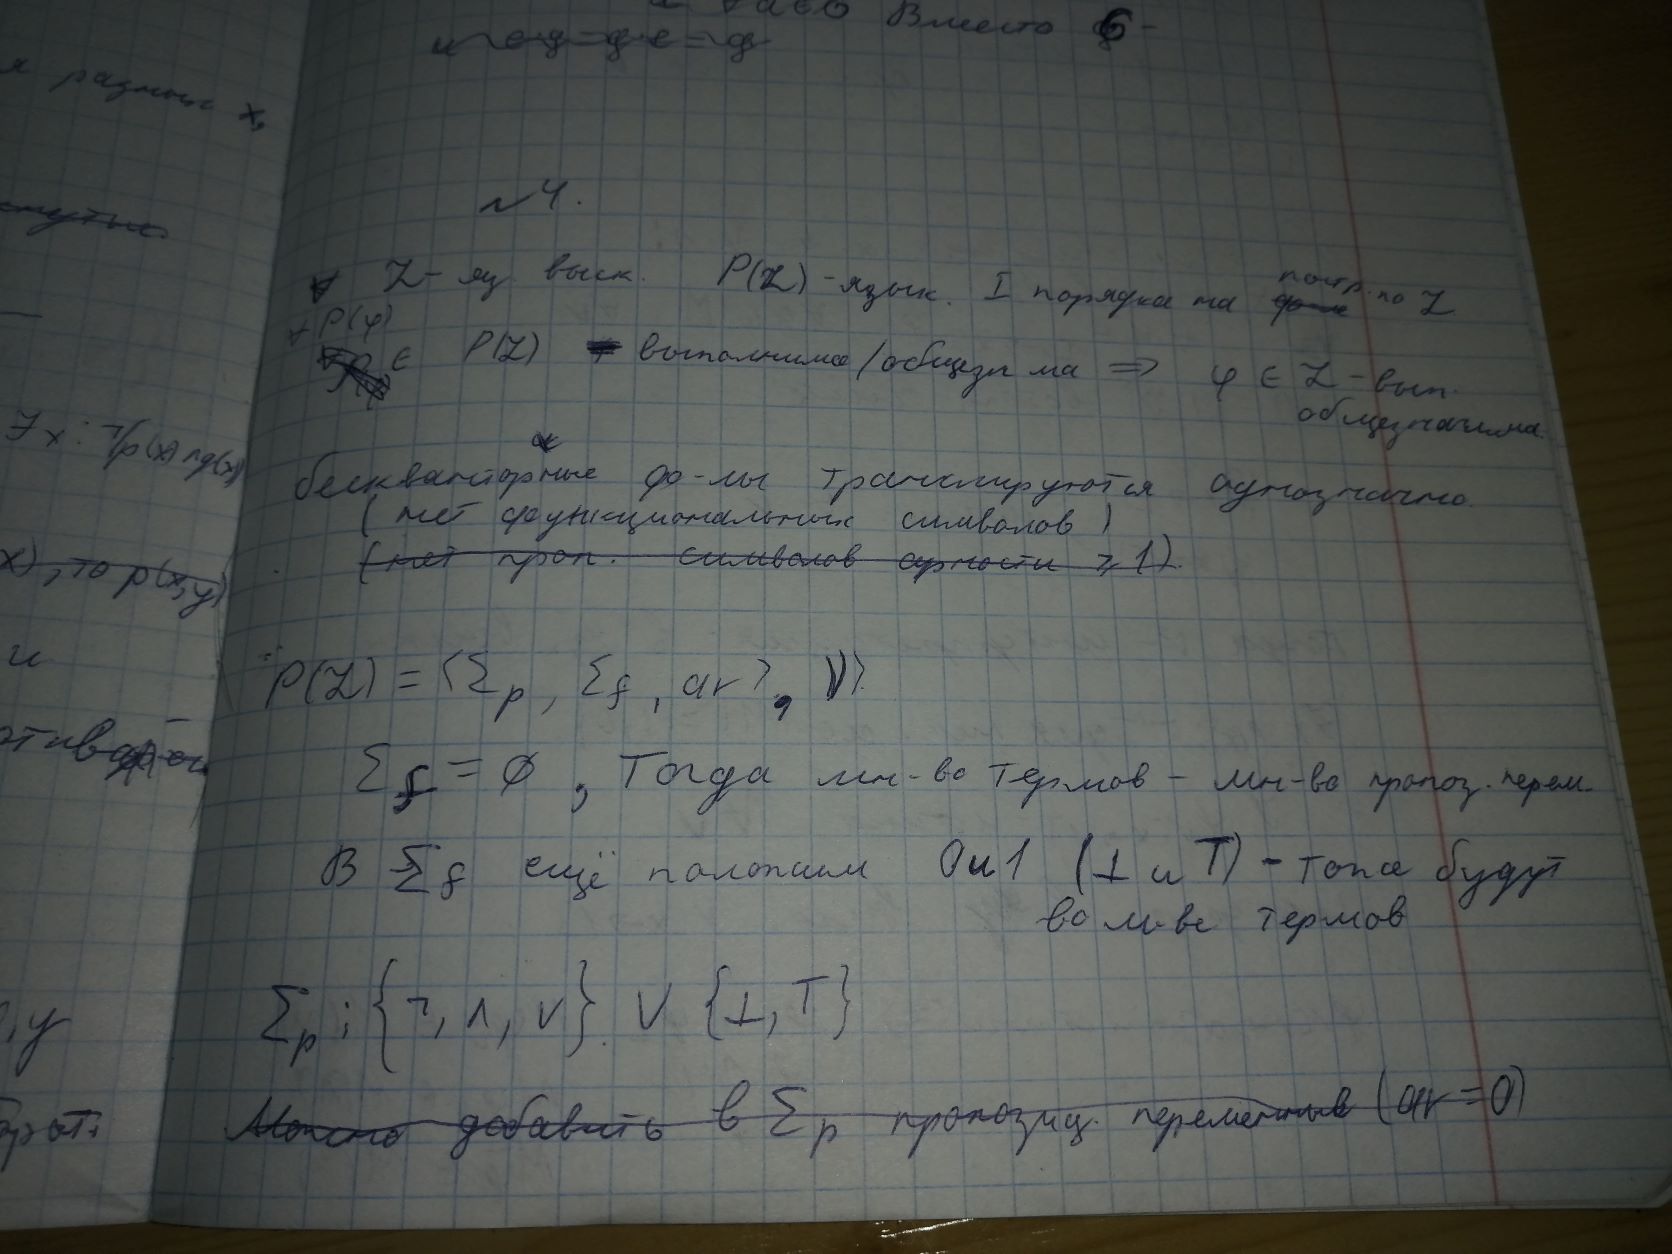 Вместо б-
и eg=ge=g
я разных x,
№4.
∀ L - яз выск. P(L) - язык. I порядка на постр. по L
∀ P(φ)
∈ P(L) выполнима/общезн ма ⇒ φ ∈ L - вып.
общезначима.
бескванторные ф-лы транслируются однозначно.
(нет функциональных символов)
(нет проп. символов арности ≥ 1).
∃x: ¬(p(x)∧q(x))
x), то p(x,y)
и
P(L) = ⟨Σp, Σf, ar⟩, V⟩.
Σf = ∅, Тогда мн-во термов - мн-во пропоз. перем.
В Σf ещё положим 0 и 1 (⊥ и T) - тоже будут
во м-ве термов
Σp : {¬, ∧, ∨} ∪ {⊥, T}
, y
Можно добавить в Σp пропозиц. переменные (ar = 0)